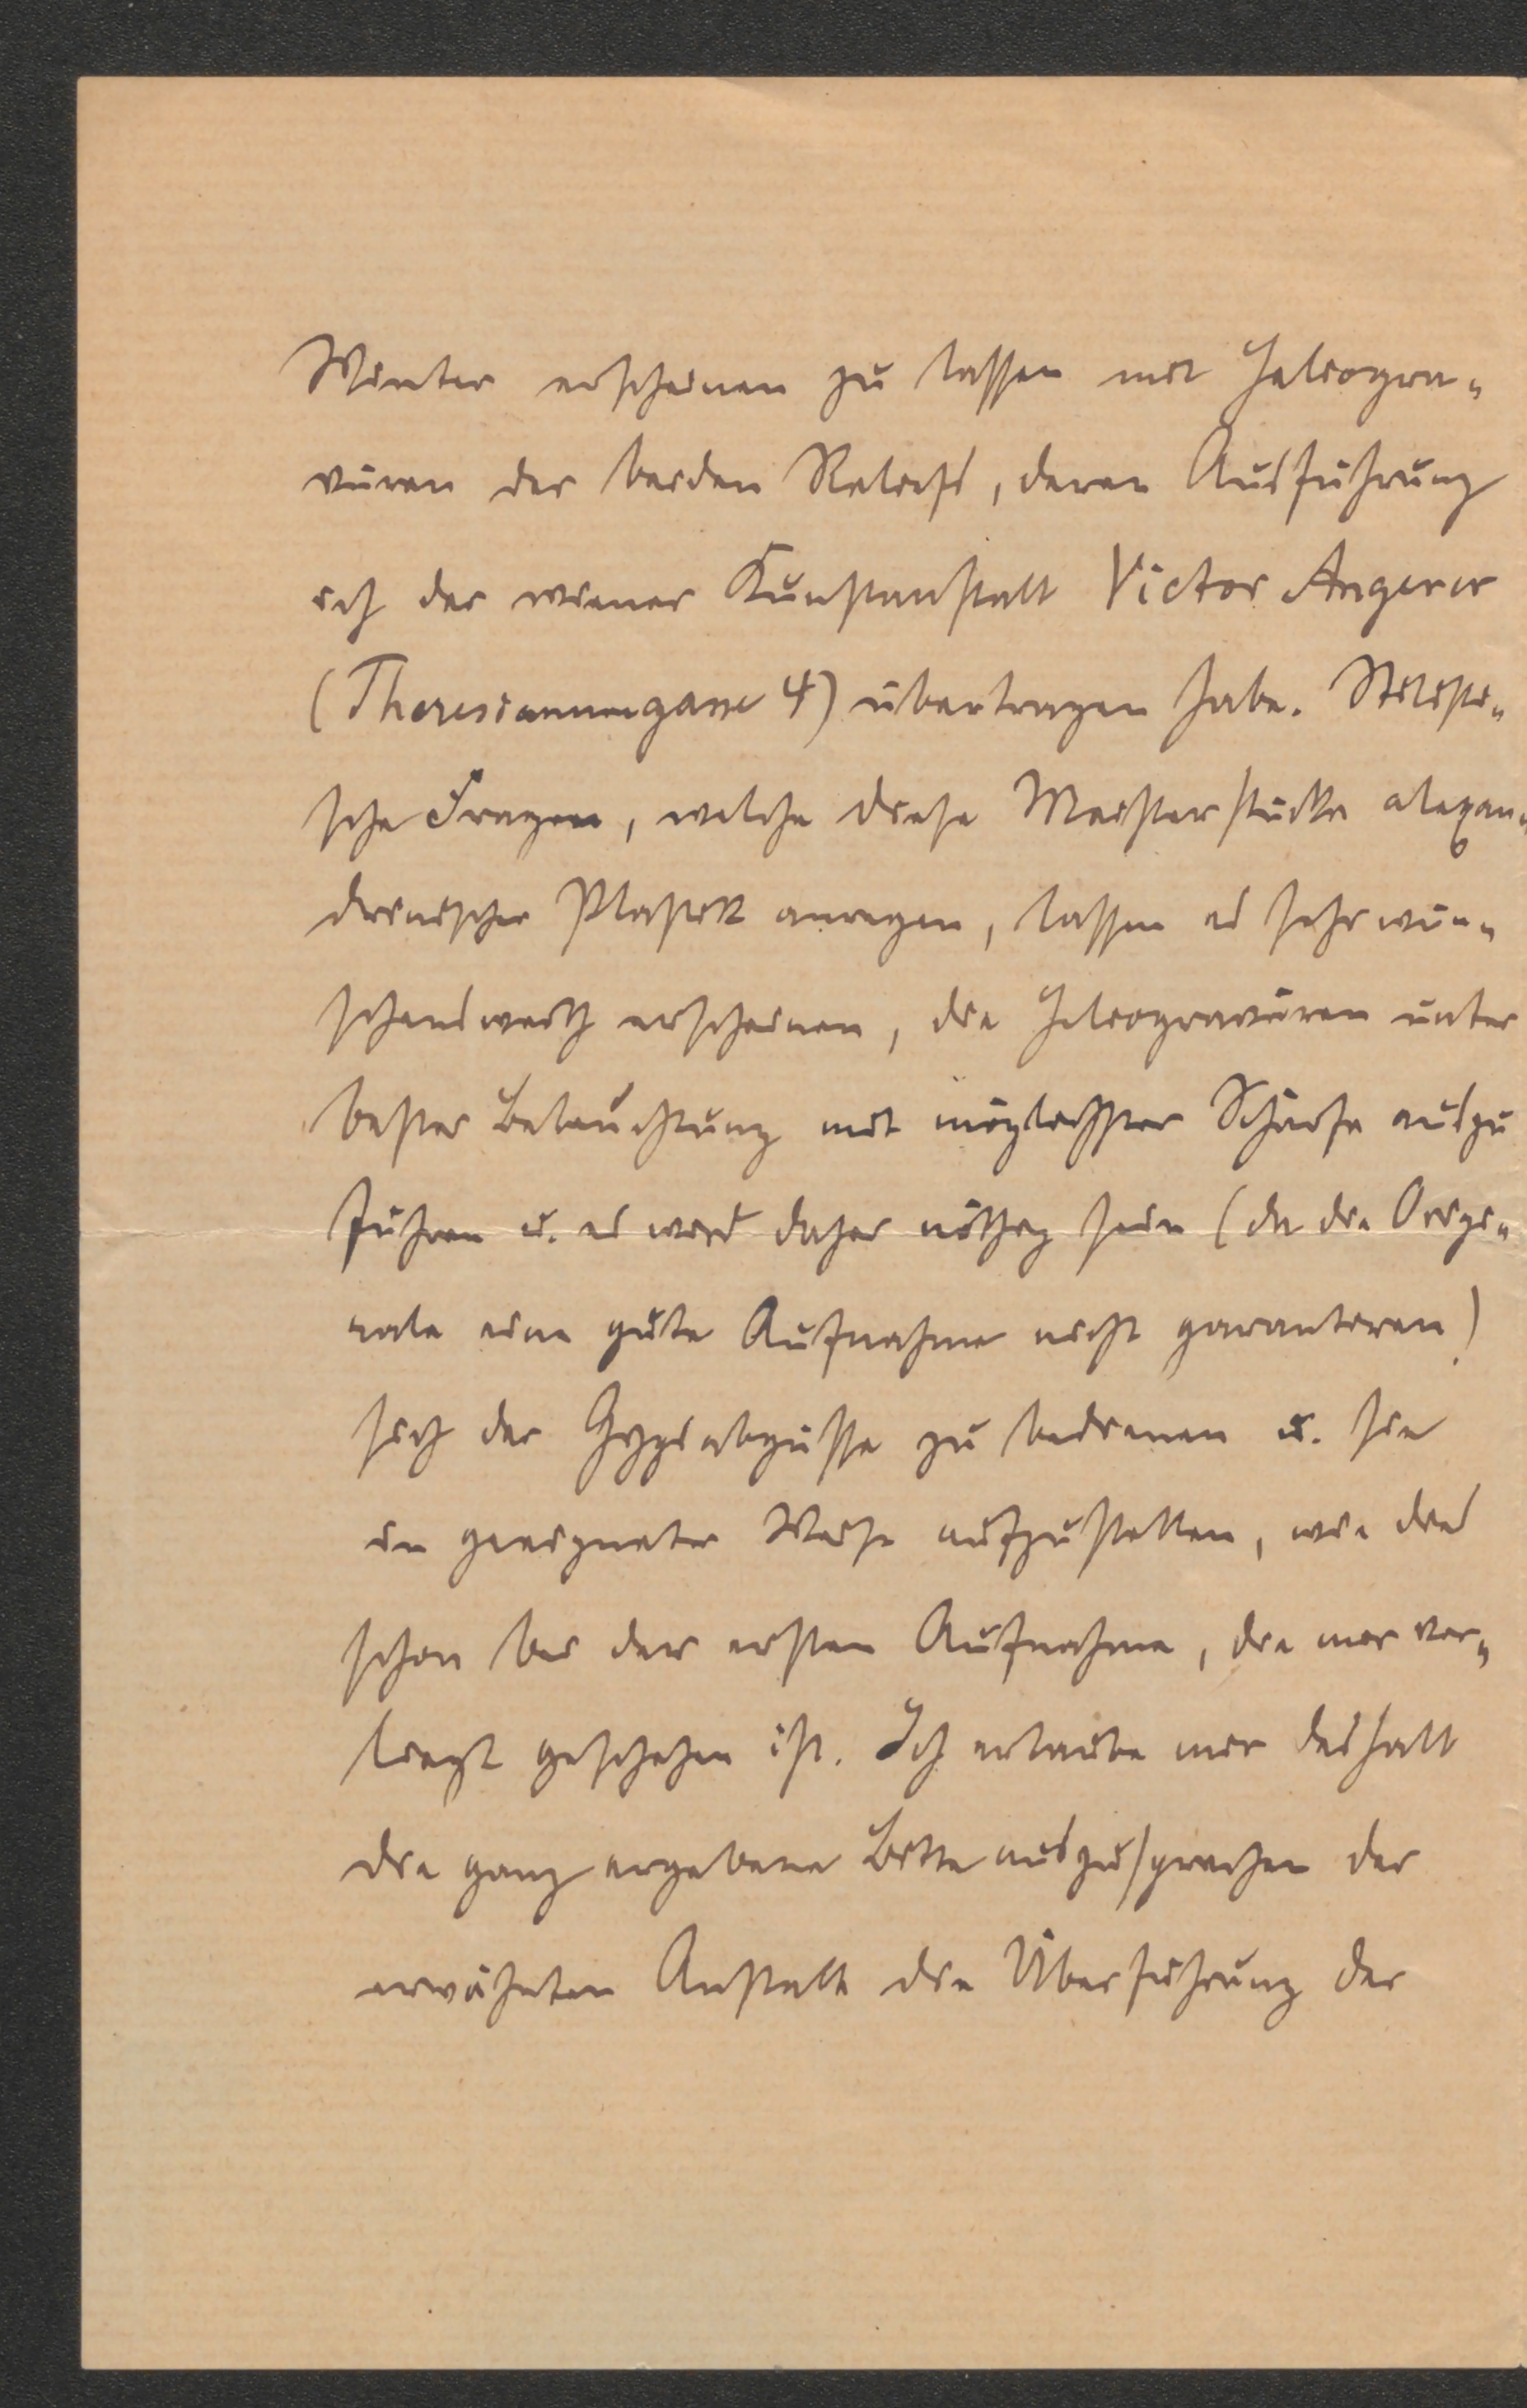 Winter erscheinen zu lassen mit Heliogra-
vuren der beiden Reliefs, deren Ausführung
ich der wiener Kunstanstalt Victor Angerer
(Theresianumgasse 4) übertragen habe. Stilisti-
sche Fragen, welche diese Meisterstücke alexan-
drinischer Plastik anregen, lassen es sehr wün-
schenswerth erscheinen, die Heliogravuren unter
bester Beleuchtung mit möglichster Schärfe auszu
führen u. es wird daher nöthig sein (da die Origi-
nale eine gute Aufnahme nicht garantiren)
sich der Gypsabgüsse zu bedienen u. sie
in geeigneter Weise aufzustellen, wie dies
schon bei der ersten Aufnahme, die mir vor-
liegt geschehen ist. Ich erlaube mir deshalb
die ganz ergebene Bitte auszusprechen der
erwähnten Anstalt die Überführung der